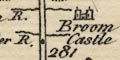 R.
Broom
er R.
Castle
281